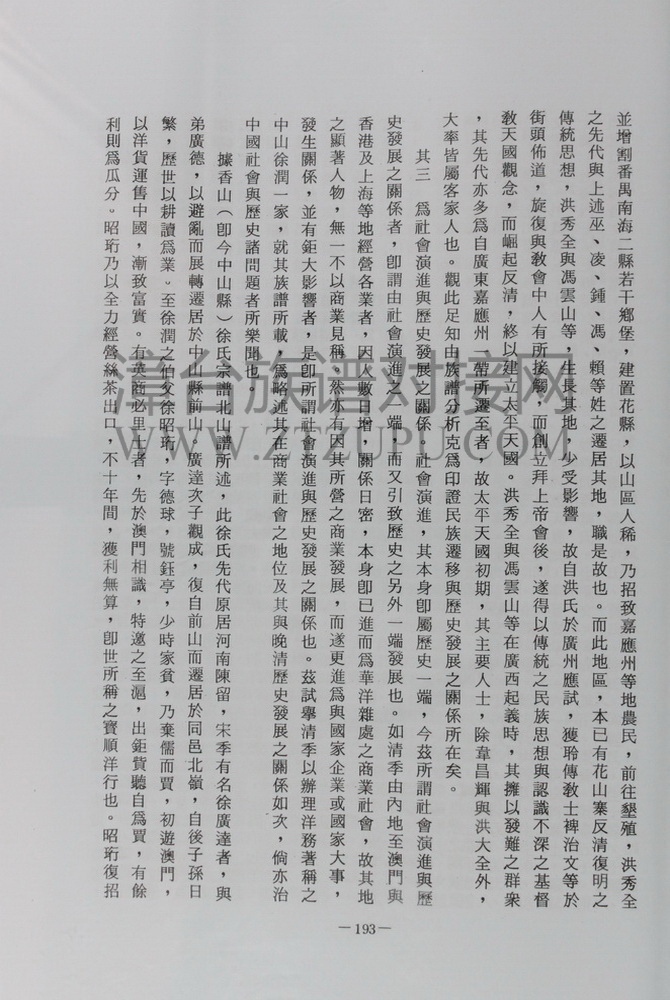 並增割番禺南海二縣若干鄉堡，建置花縣，以山區人稀，乃招致嘉應州等地農民，前往墾殖，洪秀全
之先代與上述巫、凌、鍾、馮、賴等姓之遷居其地，職是故也。而此地區，本已有花山寨反清復明之
傳統思想，洪秀全與馮雲山等，生長其地，少受影響，故自洪氏於廣州應試，獲聆傳教士裨治文等於
街頭佈道，旋復與教會中人有所接觸，而創立拜上帝會後，遂得以傳統之民族思想與認識不深之基督
教天國觀念，而崛起反清，終以建立太平天國。洪秀全與馮雲山等在廣西起義時，其擁以發難之群衆
，其先代亦多爲自廣東嘉應州一帶所遷至者，故太平天國初期，其主要人士，除韋昌輝與洪大全外，
大率皆屬客家人也。觀此足知由族譜分析克爲印證民族遷移與歷史發展之關係所在矣。
其三　爲社會演進與歷史發展之關係。社會演進，其本身卽屬歷史一端，今茲所謂社會演進與歷
史發展之關係者，卽謂由社會演進之一端，而又引致歷史之另外一端發展也。如清季由內地至澳門與
香港及上海等地經營各業者，因人數日增，關係日密，本身卽已進而爲華洋雜處之商業社會，故其地
之顯著人物，無一不以商業見稱，然亦有因其所營之商業發展，而遂更進爲與國家企業或國家大事，
發生關係，並有鉅大影響者，是卽所謂社會演進與歷史發展之關係也。茲試舉清季以辦理洋務著稱之
中山徐潤一家，就其族譜所載，爲略述其在商業社會之地位及其與晚清歷史發展之關係如次，倘亦治
中國社會與歷史諸問題者所樂聞也。
據香山（卽今中山縣）徐氏宗譜北山譜所述，此徐氏先代原居河南陳留，宋季有名徐廣達者，與
弟廣德，以避亂而展轉遷居於中山縣前山，廣達次子觀成，復自前山而遷居於同邑北嶺，自後子孫日
繁，歷世以耕讀爲業。至徐潤之伯父徐昭珩，字德球，號鈺亭，少時家貧，乃棄儒而賈，初遊澳門，
以洋貨運售中國，漸致富實。有英商必里士者，先於澳門相識，特邀之至滬，出鉅貲聽自爲賈，有餘
利則爲瓜分。昭珩乃以全力經營絲茶出口，不十年間，獲利無算，卽世所稱之寶順洋行也。昭珩復招
—193—
漳台族谱对接网
WWW.ZTZUPU.COM